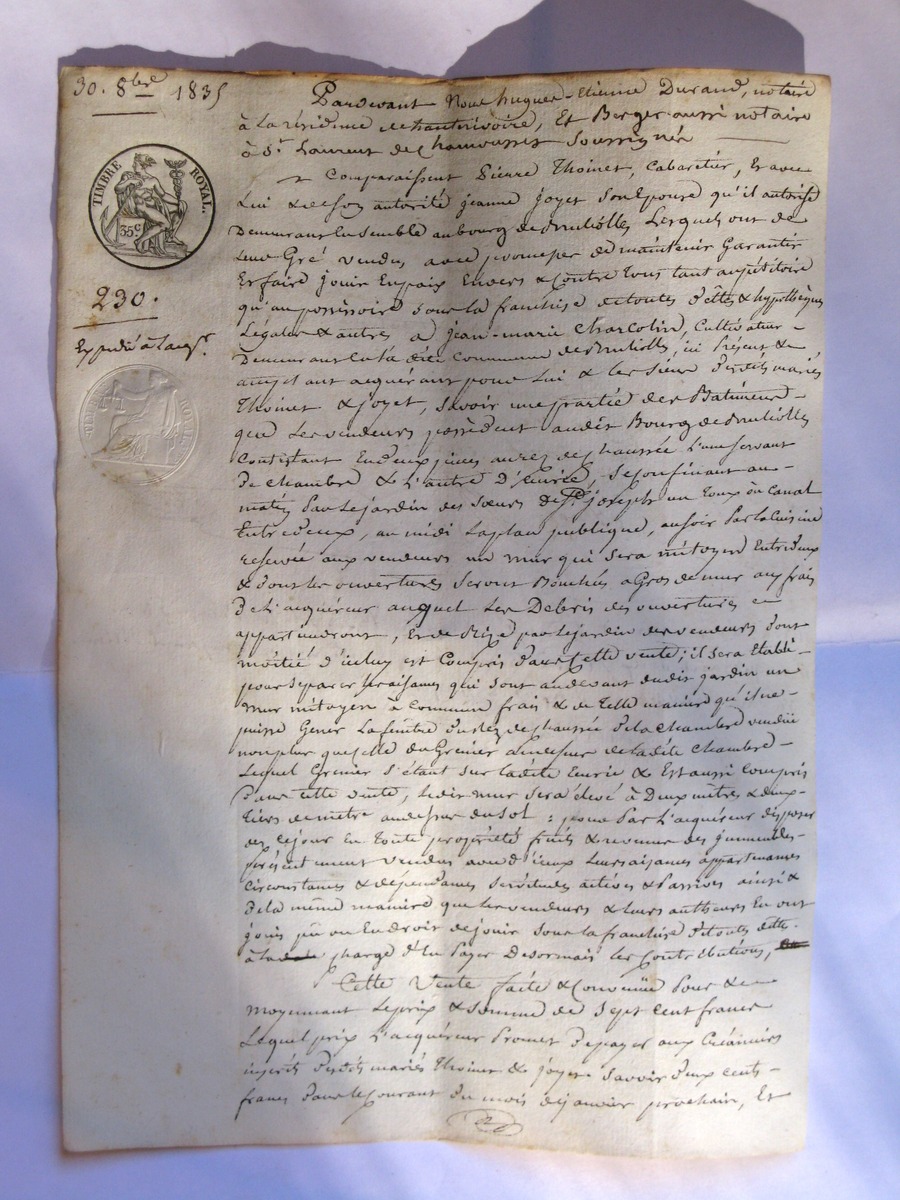 30. 8bre 1835
TIMBRE ROYAL.
35 c.
230.
Expédié à l'acqr.
TIMBRE ROYAL
Pardevant Nous hugues-Etienne Durand, notaire
à la résidence de hauterivoire, Et Berger aussi notaire
à St. Laurent de Chamousset Soussignés
Comparaissent Pierre Thoinet, Cabaretier, Et avec
Lui & de son autorité jeanne joyet Son Epouse qu'il autorise
Demeurans Ensemble au bourg de Brullioles Lesquels ont de
Leur Gré vendu, avec promesse de maintenir Garantir
Et faire jouir En paix Envers & Contre Tous tant au pétitoire
qu'au possessoire sous la franchise de toutes dettes & hypothèques
Légales & autres à jean-marie Charcolin, Cultivateur
Demeurans Commune de Brullioles, ici Présent &
acceptant acquérant pour Lui & les Siens Desdits mariés
Thoinet & joyet, Savoir une partie des Batiments
que Les vendeurs possèdent audit Bourg de Brullioles
Consistant En deux pièces au rez de chaussée L'une servant
De chambre & L'autre D'Ecurie, Se confinant au
matin Par Le jardin des Sœurs De St. joseph un
Entre deux, au midi La place publique, au soir Par la Cuisine
reservée aux vendeurs un mur qui sera mitoyen Entre deux
& dont les ouvertures seront Bouchées a Gros de mur aux frais
De L'acquéreur auquel Les Debris des ouvertures
appartiendront, Et de Bize par Le jardin des vendeurs dont
moitié d'icelui est Compris dans Cette vente; il sera Etabli
pour séparer les aisances qui sont au devant dudit jardin un
mur mitoyen à Commun frais & de Telle manière qu'il ne
puisse Gener La fenêtre du rez de chaussée de la Chambre vendue
non plus que celle du Grenier au dessus de ladite Chambre
Lequel Grenier s'étant sur ladite Ecurie & Est aussi Compris
Dans cette vente, Ledit mur sera élevé à Deux mètres & deux
tiers de mètre au dessus du Sol: pour Par L'acquéreur disposer
dès ce jour En Toute propriété fruits & revenus des immeubles
présentement vendus avec d'iceux Leurs aisances appartenances
Circonstances & dépendances Servitudes actives & Passives ainsi &
De la même manière que les vendeurs & leurs autheurs En ont
joui pu ou En droit de jouir sous la franchise de toutes dettes
à la charge d'En Payer Desormais les Contributions,
Cette Vente faite & Convenue Pour &
Moyennant Le prix & Somme de Sept Cent francs
Lequel prix L'acquéreur Promet De payer aux Créanciers
inscrits desdits mariés Thoinet & joyet Savoir deux cents
francs Dans Le Courant du mois de janvier prochain, Et